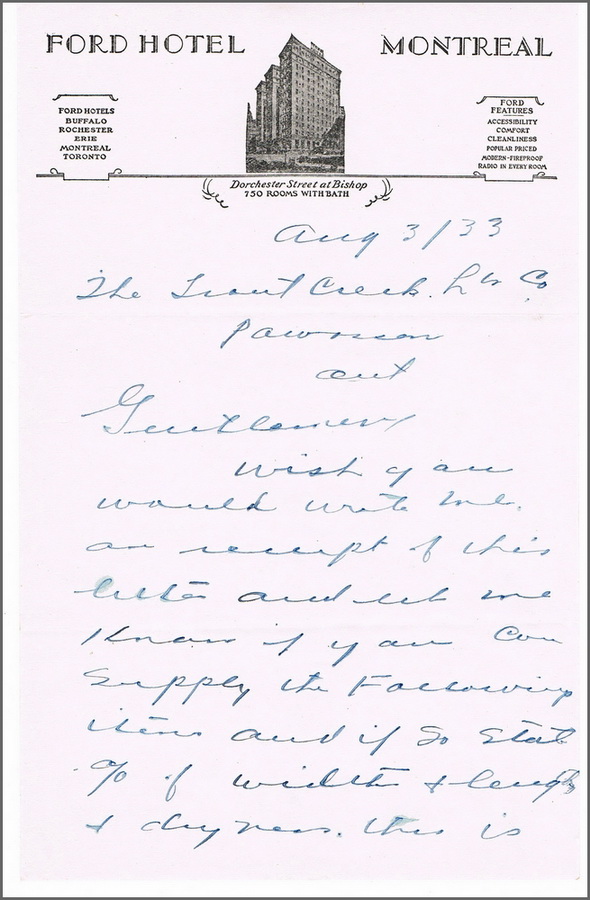 FORD HOTEL
MONTREAL
FORD HOTELS
BUFFALO
ROCHESTER
ERIE
MONTREAL
TORONTO
FORD
FEATURES
ACCESSIBILITY
COMFORT
CLEANLINESS
POPULAR PRICED
MODERN-FIREPROOF
RADIO IN EVERY ROOM
Dorchester Street at Bishop
750 ROOMS WITH BATH
Aug 3/33
The Trout Creek Co
ont
Gentlemen
wish you
would write me
on receipt of this
letter and let me
Know if you Can
Supply the Following
items and if So State
% of width & length
& dryness. this is